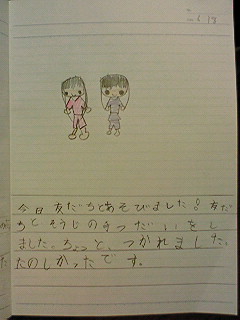 今日友だちとあそびました！友だ
ちとそうじのてつだいをし
ました。ちょっと、つかれました。
たのしかったです。